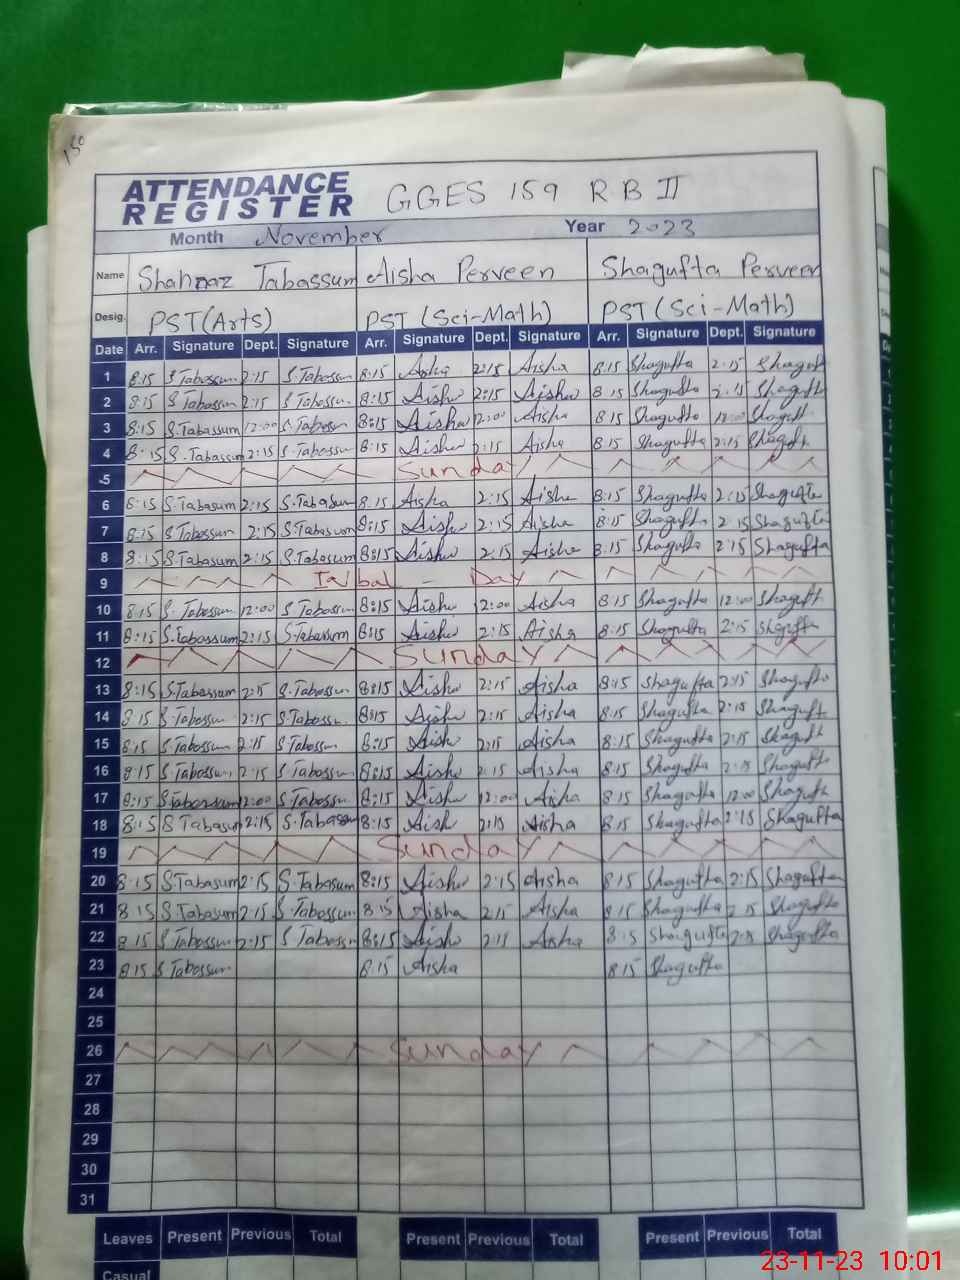 150
ATTENDANCE REGISTER GGES 159 R B II
Month November Year 2023
Name Shahnaz Tabassum Aisha Perveen Shagufta Perveen
Desig. PST(Arts) PST (Sci-Math) PST (Sci-Math)
Date Arr. Signature Dept. Signature Arr. Signature Dept. Signature Arr. Signature Dept. Signature
1 8:15 S Tabossum 2:15 S.Tabossm 8:15 Aisha 2:15 Aisha 8:15 Shagufta 2:15 Shaguft
2 8:15 S Tabossum 2:15 S.Tabossm 8:15 Aisha 2:15 Aisha 8 15 Shagufta 2:15 Shaguft
3 8:15 S.Tabassum 12:00 S.Tabossm 8:15 Aisha 12:00 Aisha 8 15 Shagufta 12:00 Shaguft
4 8:15 S.Tabassum 2:15 S.Tabossm 8:15 Aisha 2:15 Aisha 8 15 Shagufta 2:15 Shaguft
5 Sunday
6 8:15 S.Tabasum 2:15 S.Tabasum 8:15 Aisha 2:15 Aisha 8:15 Shagufta 2:15 Shagufta
7 8:15 S Tabossum 2:15 S.Tabasum 8:15 Aisha 2:15 Aisha 8:15 Shagufta 2 15 Shagufta
8 8:15 S.Tabasum 2:15 S.Tabasum 8:15 Aisha 2:15 Aisha 8:15 Shagufta 2:15 Shagufta
9 Iqbal - Day
10 8:15 S.Tabossm 12:00 S Tabossm 8:15 Aisha 12:00 Aisha 8:15 Shagufta 12:00 Shaguft
11 8:15 S.Tabassum 2:15 S.Tabassum 8:15 Aisha 2:15 Aisha 8:15 Shagufta 2:15 Shagufta
12 Sunday
13 8:15 S.Tabassum 2:15 S.Tabassum 8:15 Aisha 2:15 Aisha 8:15 Shagufta 2:15 Shagufta
14 8:15 S Tabossm 2:15 S.Tabossm 8:15 Aisha 2:15 Aisha 8:15 Shagufta 2:15 Shaguft
15 8:15 S Tabossum 2:15 S Tabossm 8:15 Aisha 2:15 Aisha 8:15 Shagufta 2:15 Shaguft
16 8:15 S Tabossum 2:15 S Tabossm 8:15 Aisha 2:15 Aisha 8:15 Shagufta 2:15 Shagufta
17 8:15 S Tabossum 12:00 S Tabossm 8:15 Aisha 12:00 Aisha 8:15 Shagufta 12:00 Shaguft
18 8:15 S Tabasum 2:15 S.Tabasum 8:15 Aisha 2:15 Aisha 8:15 Shagufta 2:15 Shagufta
19 Sunday
20 8:15 S.Tabasum 2:15 S.Tabasum 8:15 Aisha 2:15 Aisha 8:15 Shagufta 2:15 Shagufta
21 8 15 S.Tabasum 2:15 S.Tabossm 8 15 Aisha 2:15 Aisha 8 15 Shagufta 2 15 Shagufta
22 8 15 S.Tabossum 2:15 S Tabossm 8:15 Aisha 2:15 Aisha 8:15 Shagufta 2:15 Shagufta
23 8:15 S Tabossum 8:15 Aisha 8:15 Shagufta
24
25
26 Sunday
27
28
29
30
31
Leaves Present Previous Total Present Previous Total Present Previous Total
Casual
23-11-23 10:01